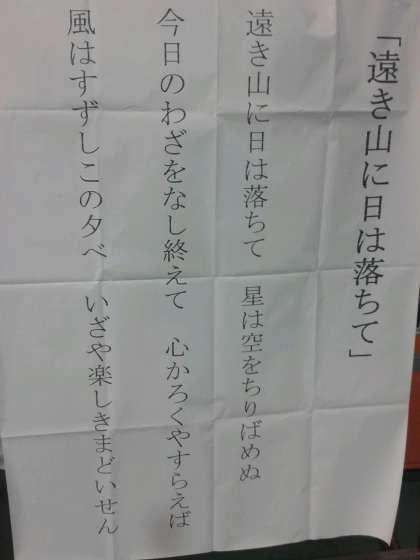 「遠き山に日は落ちて」
遠き山に日は落ちて　星は空をちりばめぬ
今日のわざをなし終えて　心かろくやすらえば
風はすずしこの夕べ　いざや楽しきまどいせん